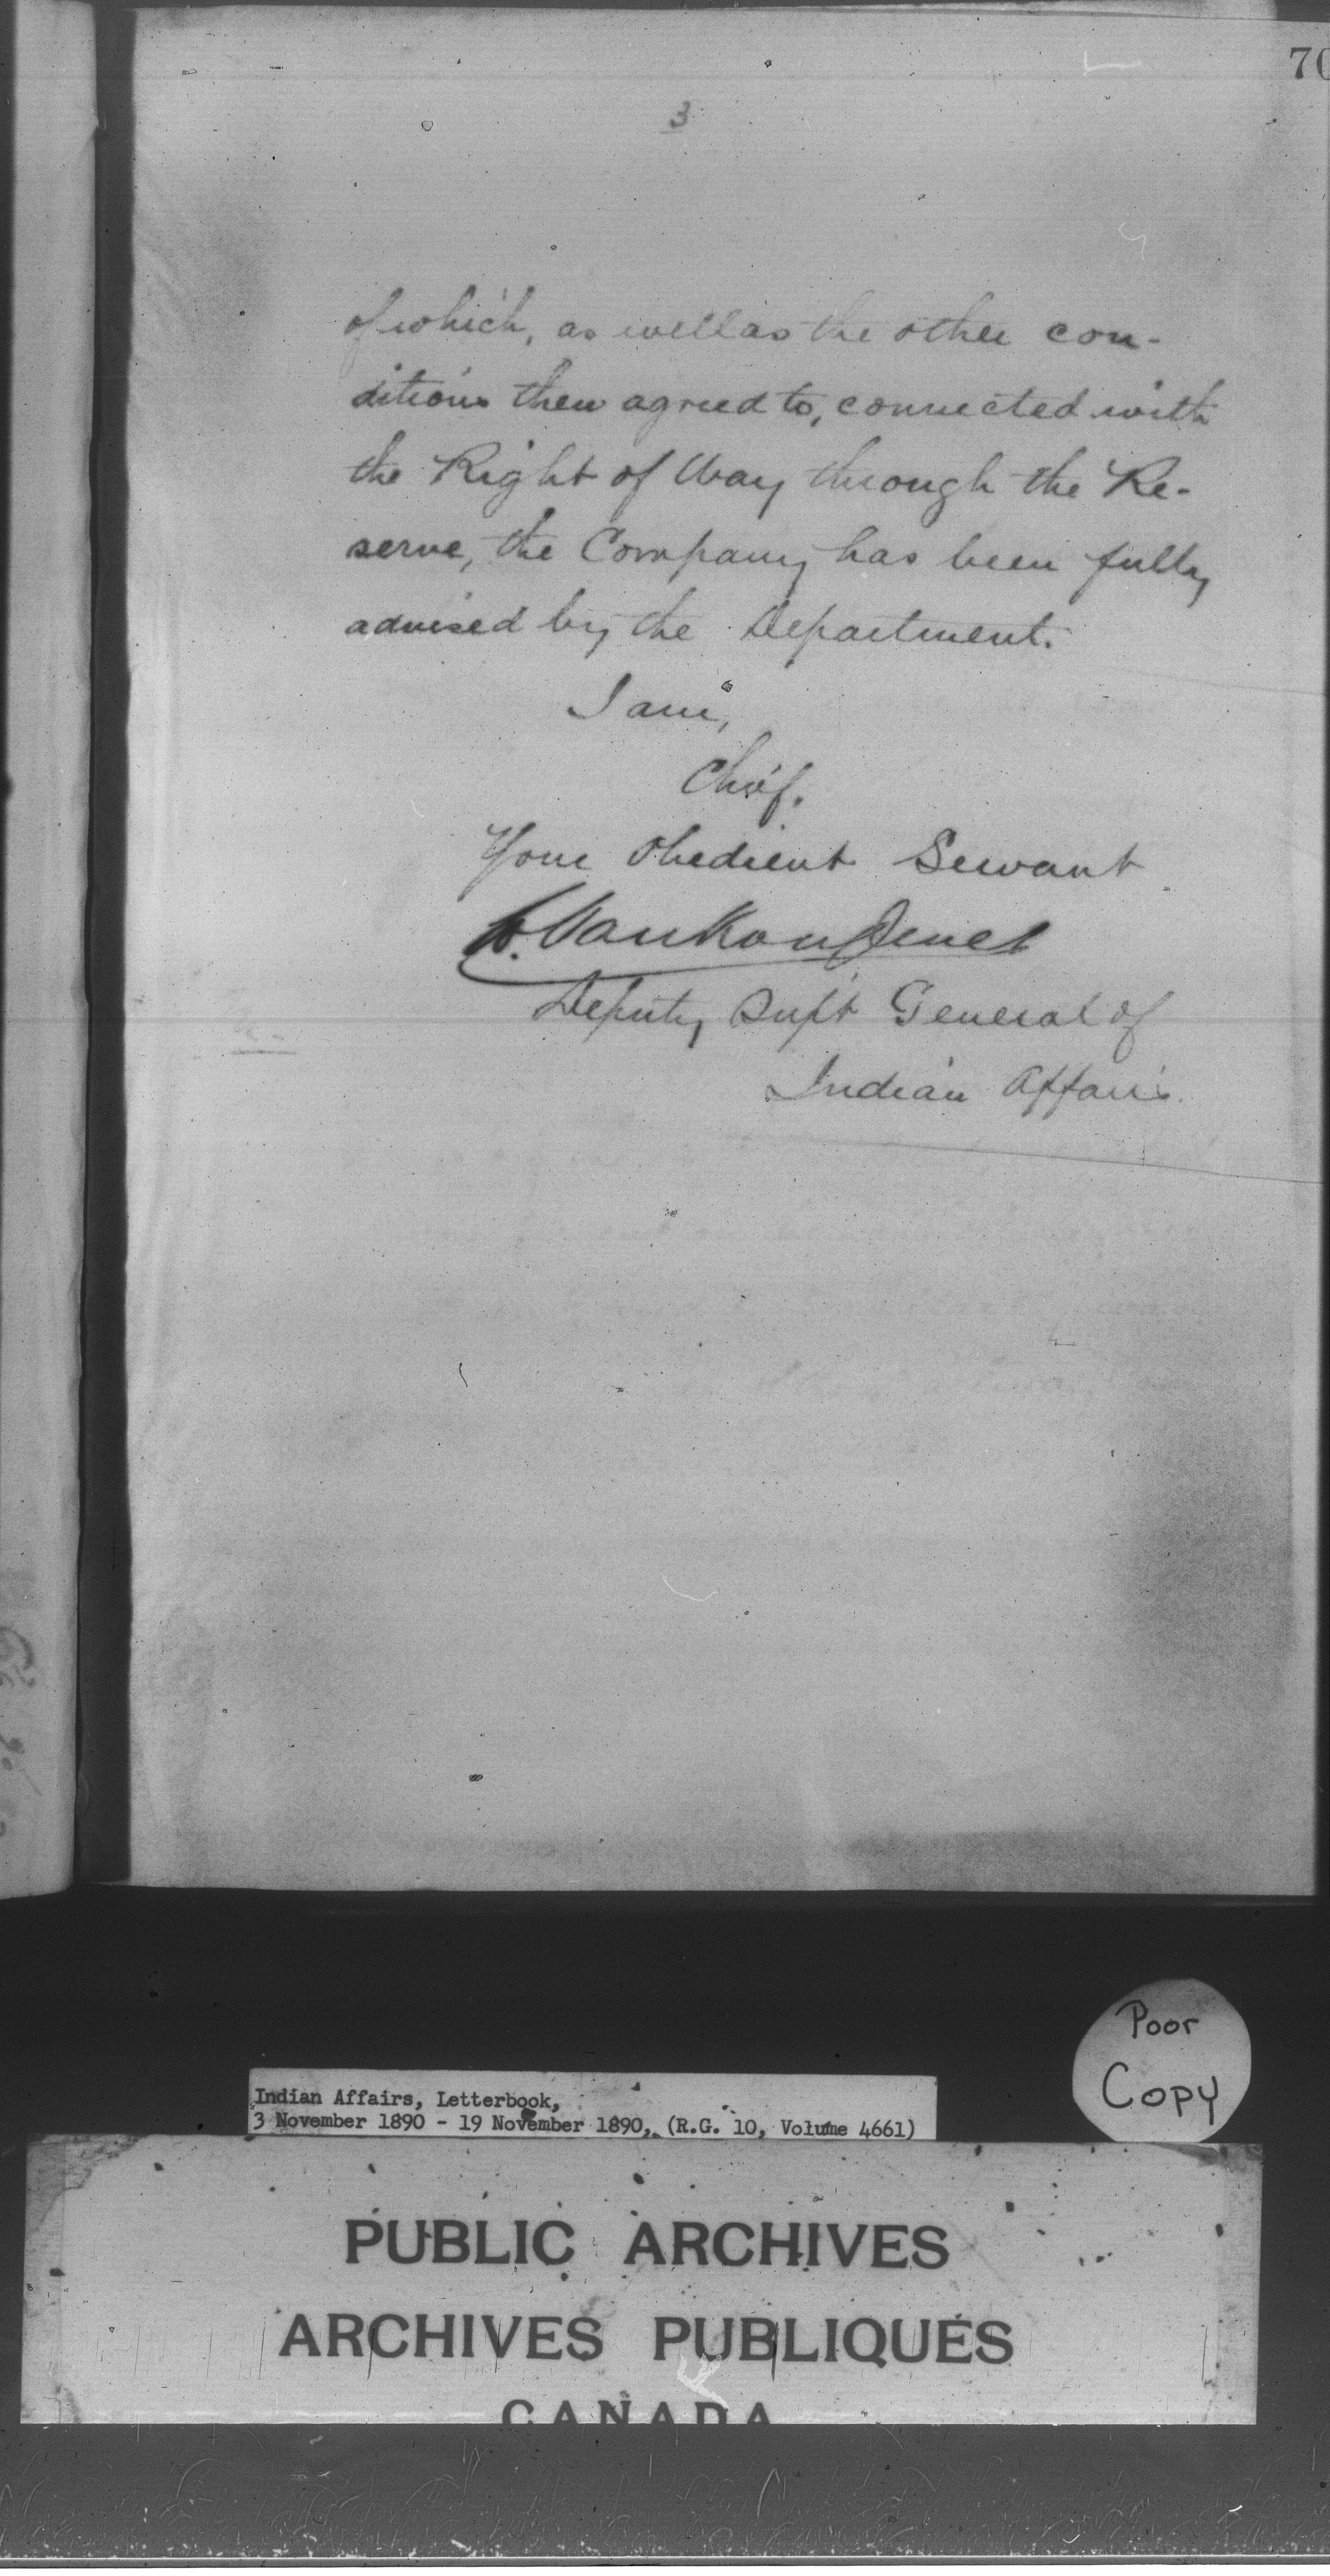 70
3
of which, as well as the other con-
ditions then agreed to, connected with
the Right of Way through the Re-
serve, the Company has been fully
advised by the Department.
I am,
Chief.
Your Obedient Servant
L. VanKoughnet
Deputy Supt General of
Indian Affairs.
Poor
Copy
Indian Affairs, Letterbook,
3 November 1890 - 19 November 1890, (R.G. 10, Volume 4661)
PUBLIC ARCHIVES
ARCHIVES PUBLIQUES
CANADA